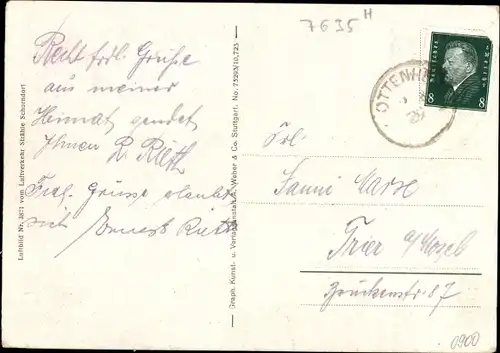 7635 H
Recht frdl. Grüße
aus meiner
Heimat sendet
Ihnen R. Rieth
Frdl. Grüsse erlaubt
sich Ernest Rieth
Luftbild Nr. 3871 vom Luftverkehr Strähle Schorndorf
Graph. Kunst- u. Verlagsanstalt A. Weber & Co. Stuttgart. No. 75293/10,723.
OTTENH
Deutsches Reich
8 8
Frl.
Fanni Marse
Trier a/Mosel
Brückenstr. 87
0900